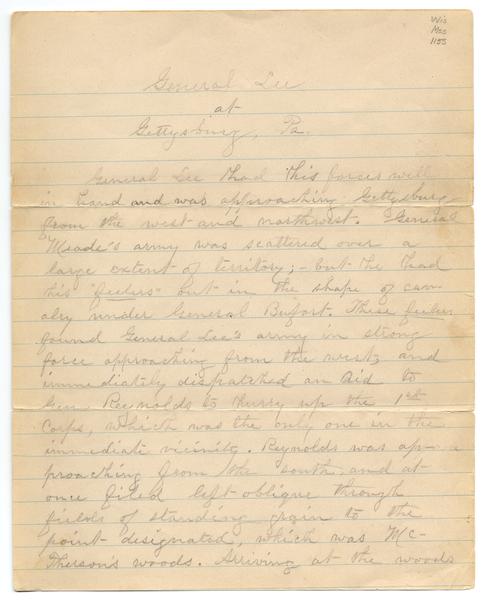 Wis
Mss
115S
General Lee
at
Gettysburg, Pa.
General Lee had his forces well
in hand and was approaching Gettysburg
from the west and northwest. General
Meade's army was scattered over a
large extent of territory; - but he had
his "feelers" out in the shape of cav-
alry under General Bufort. These feelers
found General Lee's army in strong
force approaching from the west, and
immediately dispatched an Aid to
Gen Reynolds to hurry up the 1st
Corps, which was the only one in the
immediate vicinity. Reynolds was ap-
proaching from the south, and at
once filed left oblique through
fields of standing grain to the
point designated, which was Mc-
Pherson's woods. Arriving at the woods